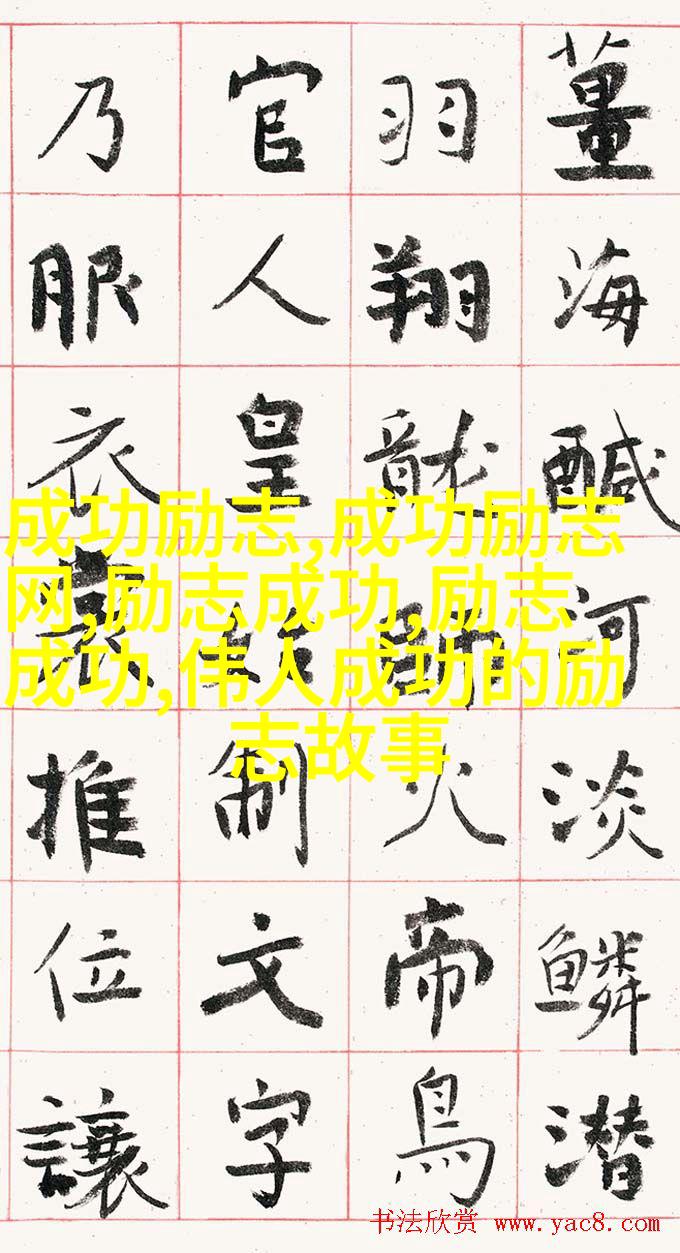 薑海醎河淡鳞潜
羽翔龍師火帝鳥
官人皇始制文字
乃服衣裳推位讓
成功励志,成功励志
网,励志成功,励志
成功,伟人成功的励
志故事
书法欣赏 www.yac8.com